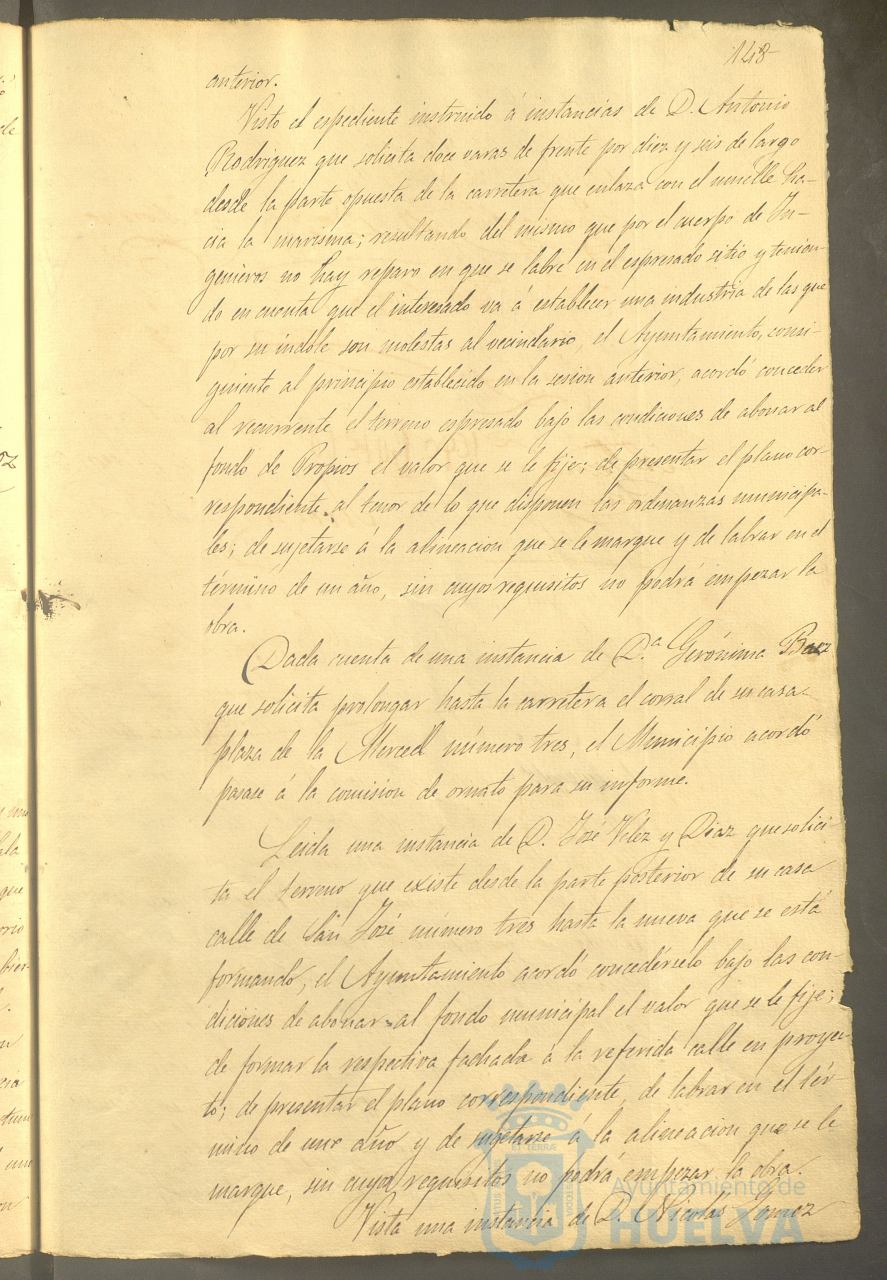 148
anterior.
Visto el espediente instruido á instancias de D. Antonio
Rodriguez que solicita doce varas de frente por diez y seis de largo
desde la parte opuesta de la carretera que enlaza con el muelle ha-
cia la marisma; resultando del mismo que por el cuerpo de In-
genieros no hay reparo en que se labre en el espresado sitio y tenien-
do en cuenta que el interesado va á establecer una industria de las que
por su índole son molestas al vecindario, el Ayuntamiento, consi-
guiente al principio establecido en la sesion anterior, acordó conceder
al recurrente el terreno espresado bajo las condiciones de abonar al
fondo de Propios el valor que se le fije; de presentar el plano cor-
respondiente al tenor de lo que disponen las ordenanzas municipa-
les; de sujetarse á la alineacion que se le marque y de labrar en el
término de un año, sin cuyos requisitos no podrá empezar la
obra.
Dada cuenta de una instancia de D.ª Gerónima Baez
que solicita prolongar hasta la carretera el corral de su casa
plaza de la Merced número tres, el Municipio acordó
pasase á la comision de ornato para su informe.
Leida una instancia de D. José Velez y Diaz que solici-
ta el terreno que existe desde la parte posterior de su casa
calle de San José número tres hasta la nueva que se está
formando, el Ayuntamiento acordó concedérselo bajo las con-
diciones de abonar al fondo municipal el valor que se le fije;
de formar la respectiva fachada á la referida calle en proyec-
to; de presentar el plano correspondiente, de labrar en el tér-
mino de un año y de sugetarse á la alineacion que se le
marque, sin cuyos requisitos no podrá empezar la obra.
Vista una instancia de D. Nicolas Gomez
Ayuntamiento de
HUELVA